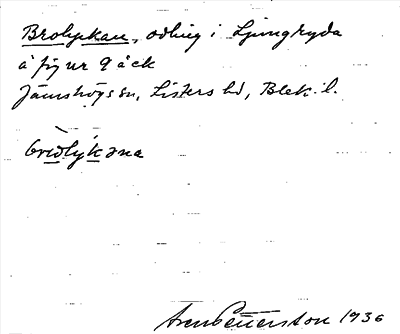 Brolyckan, odling i Ljungryda
å fig ur 9 åck
Jämshögs sn, Listers hd, Blek. l.
bròlykəna
Sven Petterson 1936